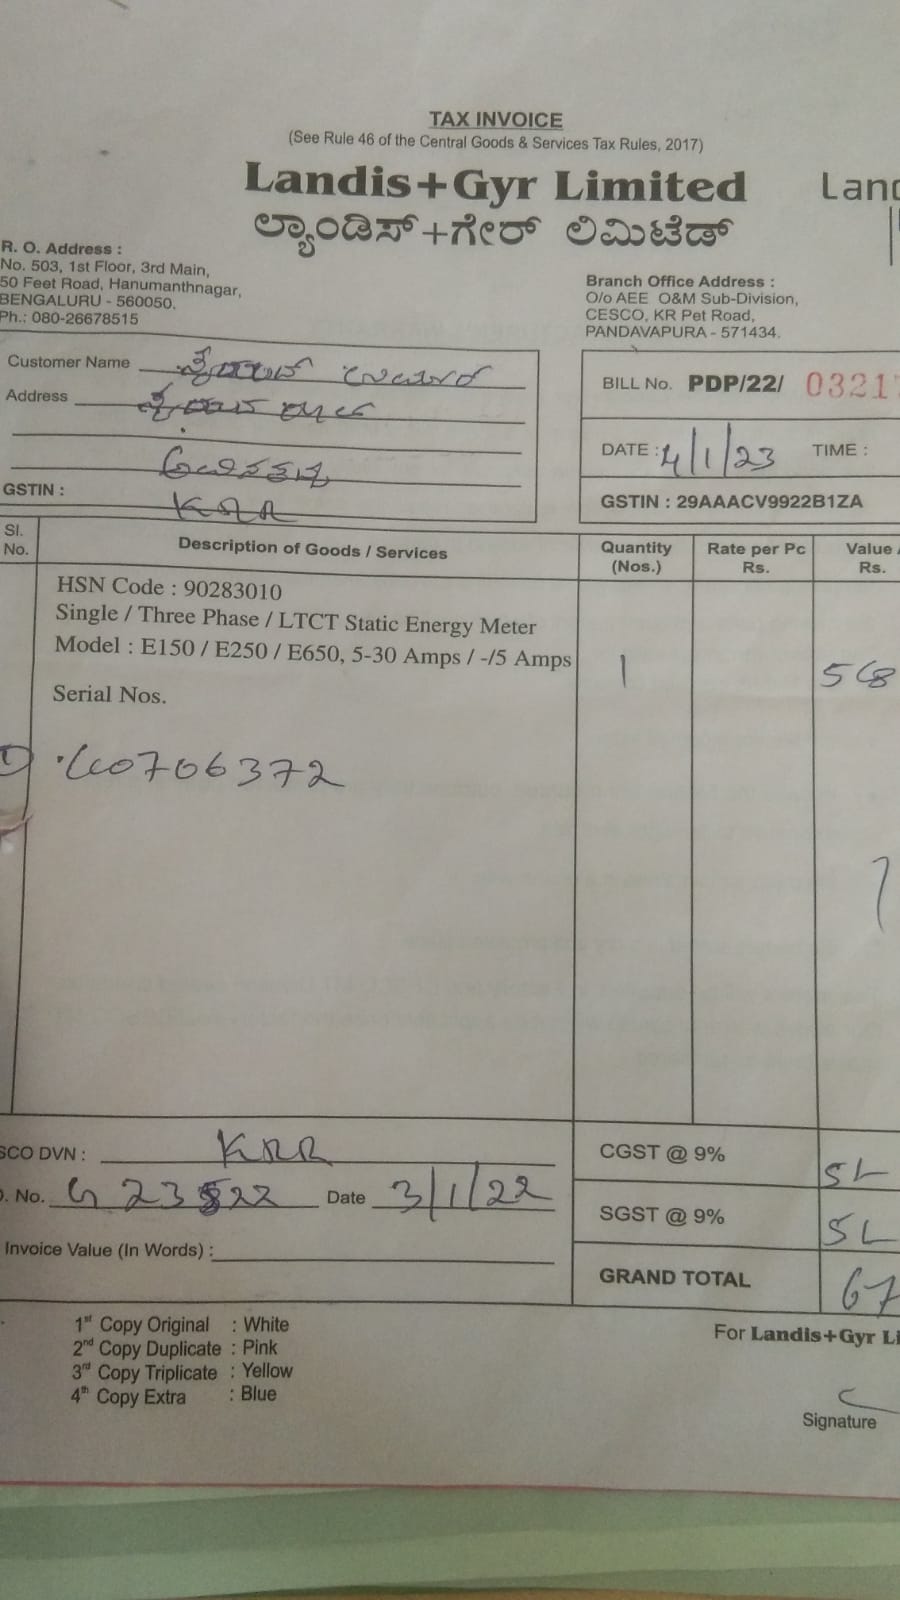 TAX INVOICE
(See Rule 46 of the Central Goods & Services Tax Rules, 2017)
Landis+Gyr Limited
Land
ಲ್ಯಾಂಡಿಸ್+ಗೇರ್ ಲಿಮಿಟೆಡ್
R. O. Address :
No. 503, 1st Floor, 3rd Main,
50 Feet Road, Hanumanthnagar,
BENGALURU - 560050.
Ph.: 080-26678515
Branch Office Address :
O/o AEE O&M Sub-Division,
CESCO, KR Pet Road,
PANDAVAPURA - 571434.
Customer Name
Address
GSTIN :
BILL No. PDP/22/ 0321
DATE : 4/1/23 TIME :
GSTIN : 29AAACV9922B1ZA
Sl. No. Description of Goods / Services Quantity (Nos.) Rate per Pc Rs. Value Rs.
HSN Code : 90283010
Single / Three Phase / LTCT Static Energy Meter
Model : E150 / E250 / E650, 5-30 Amps / -/5 Amps 1
Serial Nos.
SCO DVN :
CGST @ 9%
. No. Date 3/1/22
SGST @ 9%
Invoice Value (In Words) :
GRAND TOTAL 67
1st Copy Original : White
2nd Copy Duplicate : Pink
3rd Copy Triplicate : Yellow
4th Copy Extra : Blue
For Landis+Gyr Li
Signature